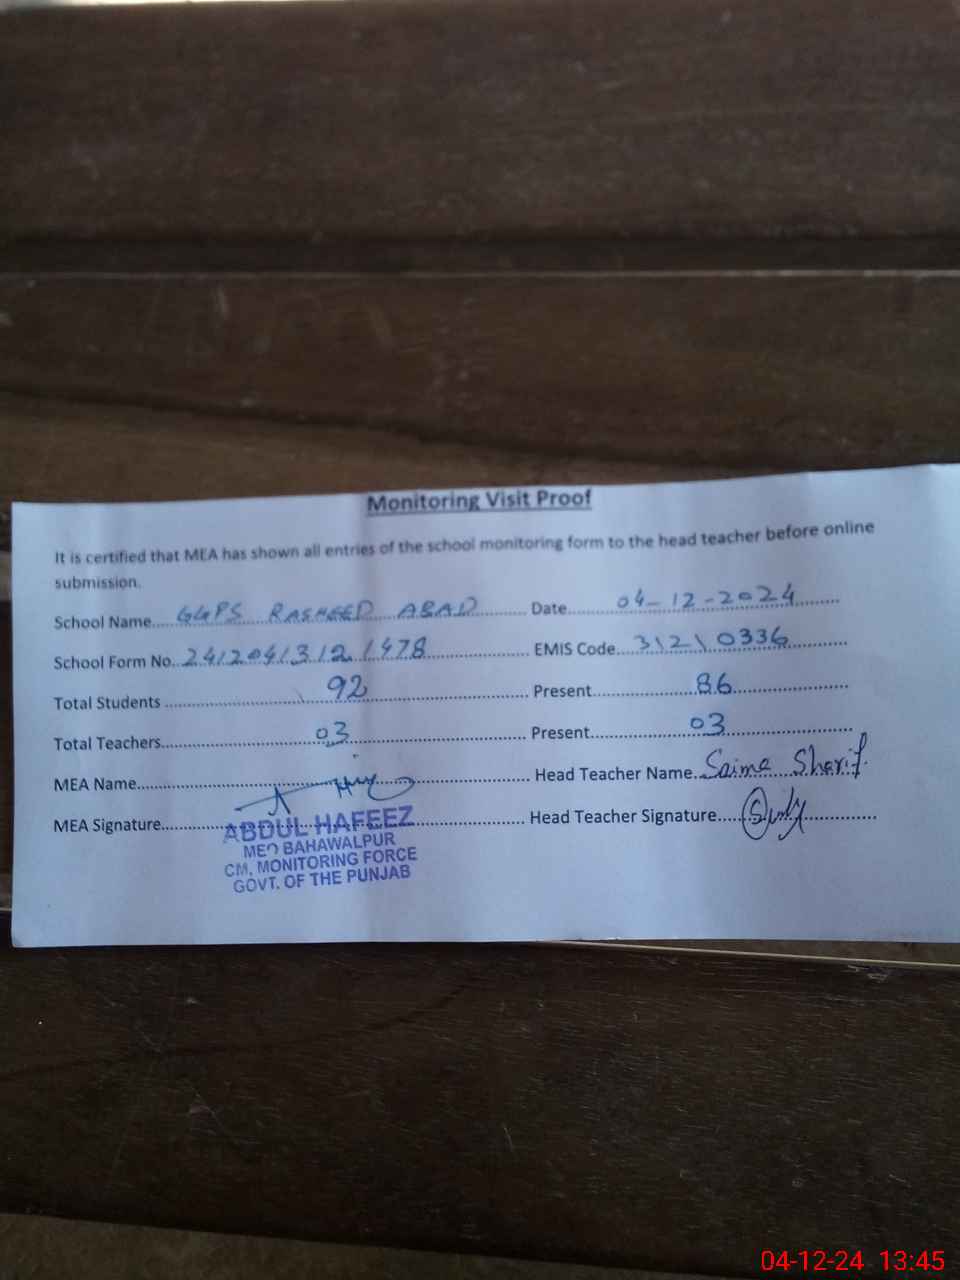 Monitoring Visit Proof
It is certified that MEA has shown all entries of the school monitoring form to the head teacher before online
submission.
School Name GGPS RASHEED ABAD Date 04-12-2024
School Form No. 241204/312/1478 EMIS Code 31210336
Total Students 92 Present 86
Total Teachers 03 Present 03
MEA Name Head Teacher Name Saima Sharif
MEA Signature Head Teacher Signature
ABDUL HAFEEZ
MEO BAHAWALPUR
CM, MONITORING FORCE
GOVT. OF THE PUNJAB
04-12-24 13:45